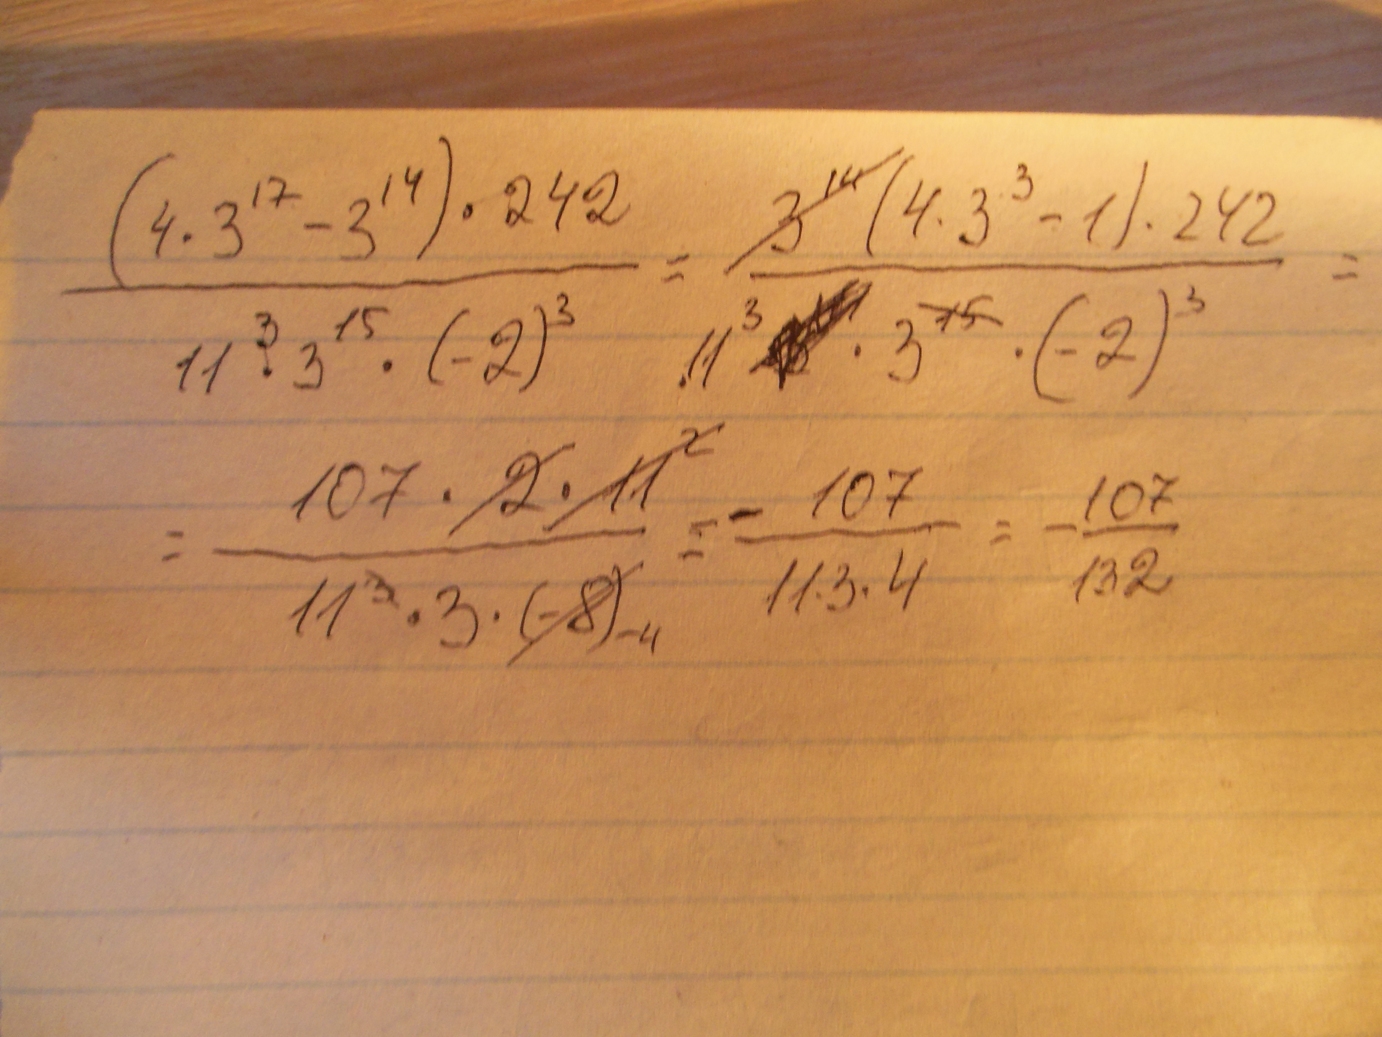 (4·3^17 - 3^14)·242 / 11^3·3^15·(-2)^3 = 3^14(4·3^3 - 1)·242 / 11^3·3^15·(-2)^3 =
= 107·2·11^2 / 11^3·3·(-8) -4 = - 107 / 11·3·4 = - 107 / 132